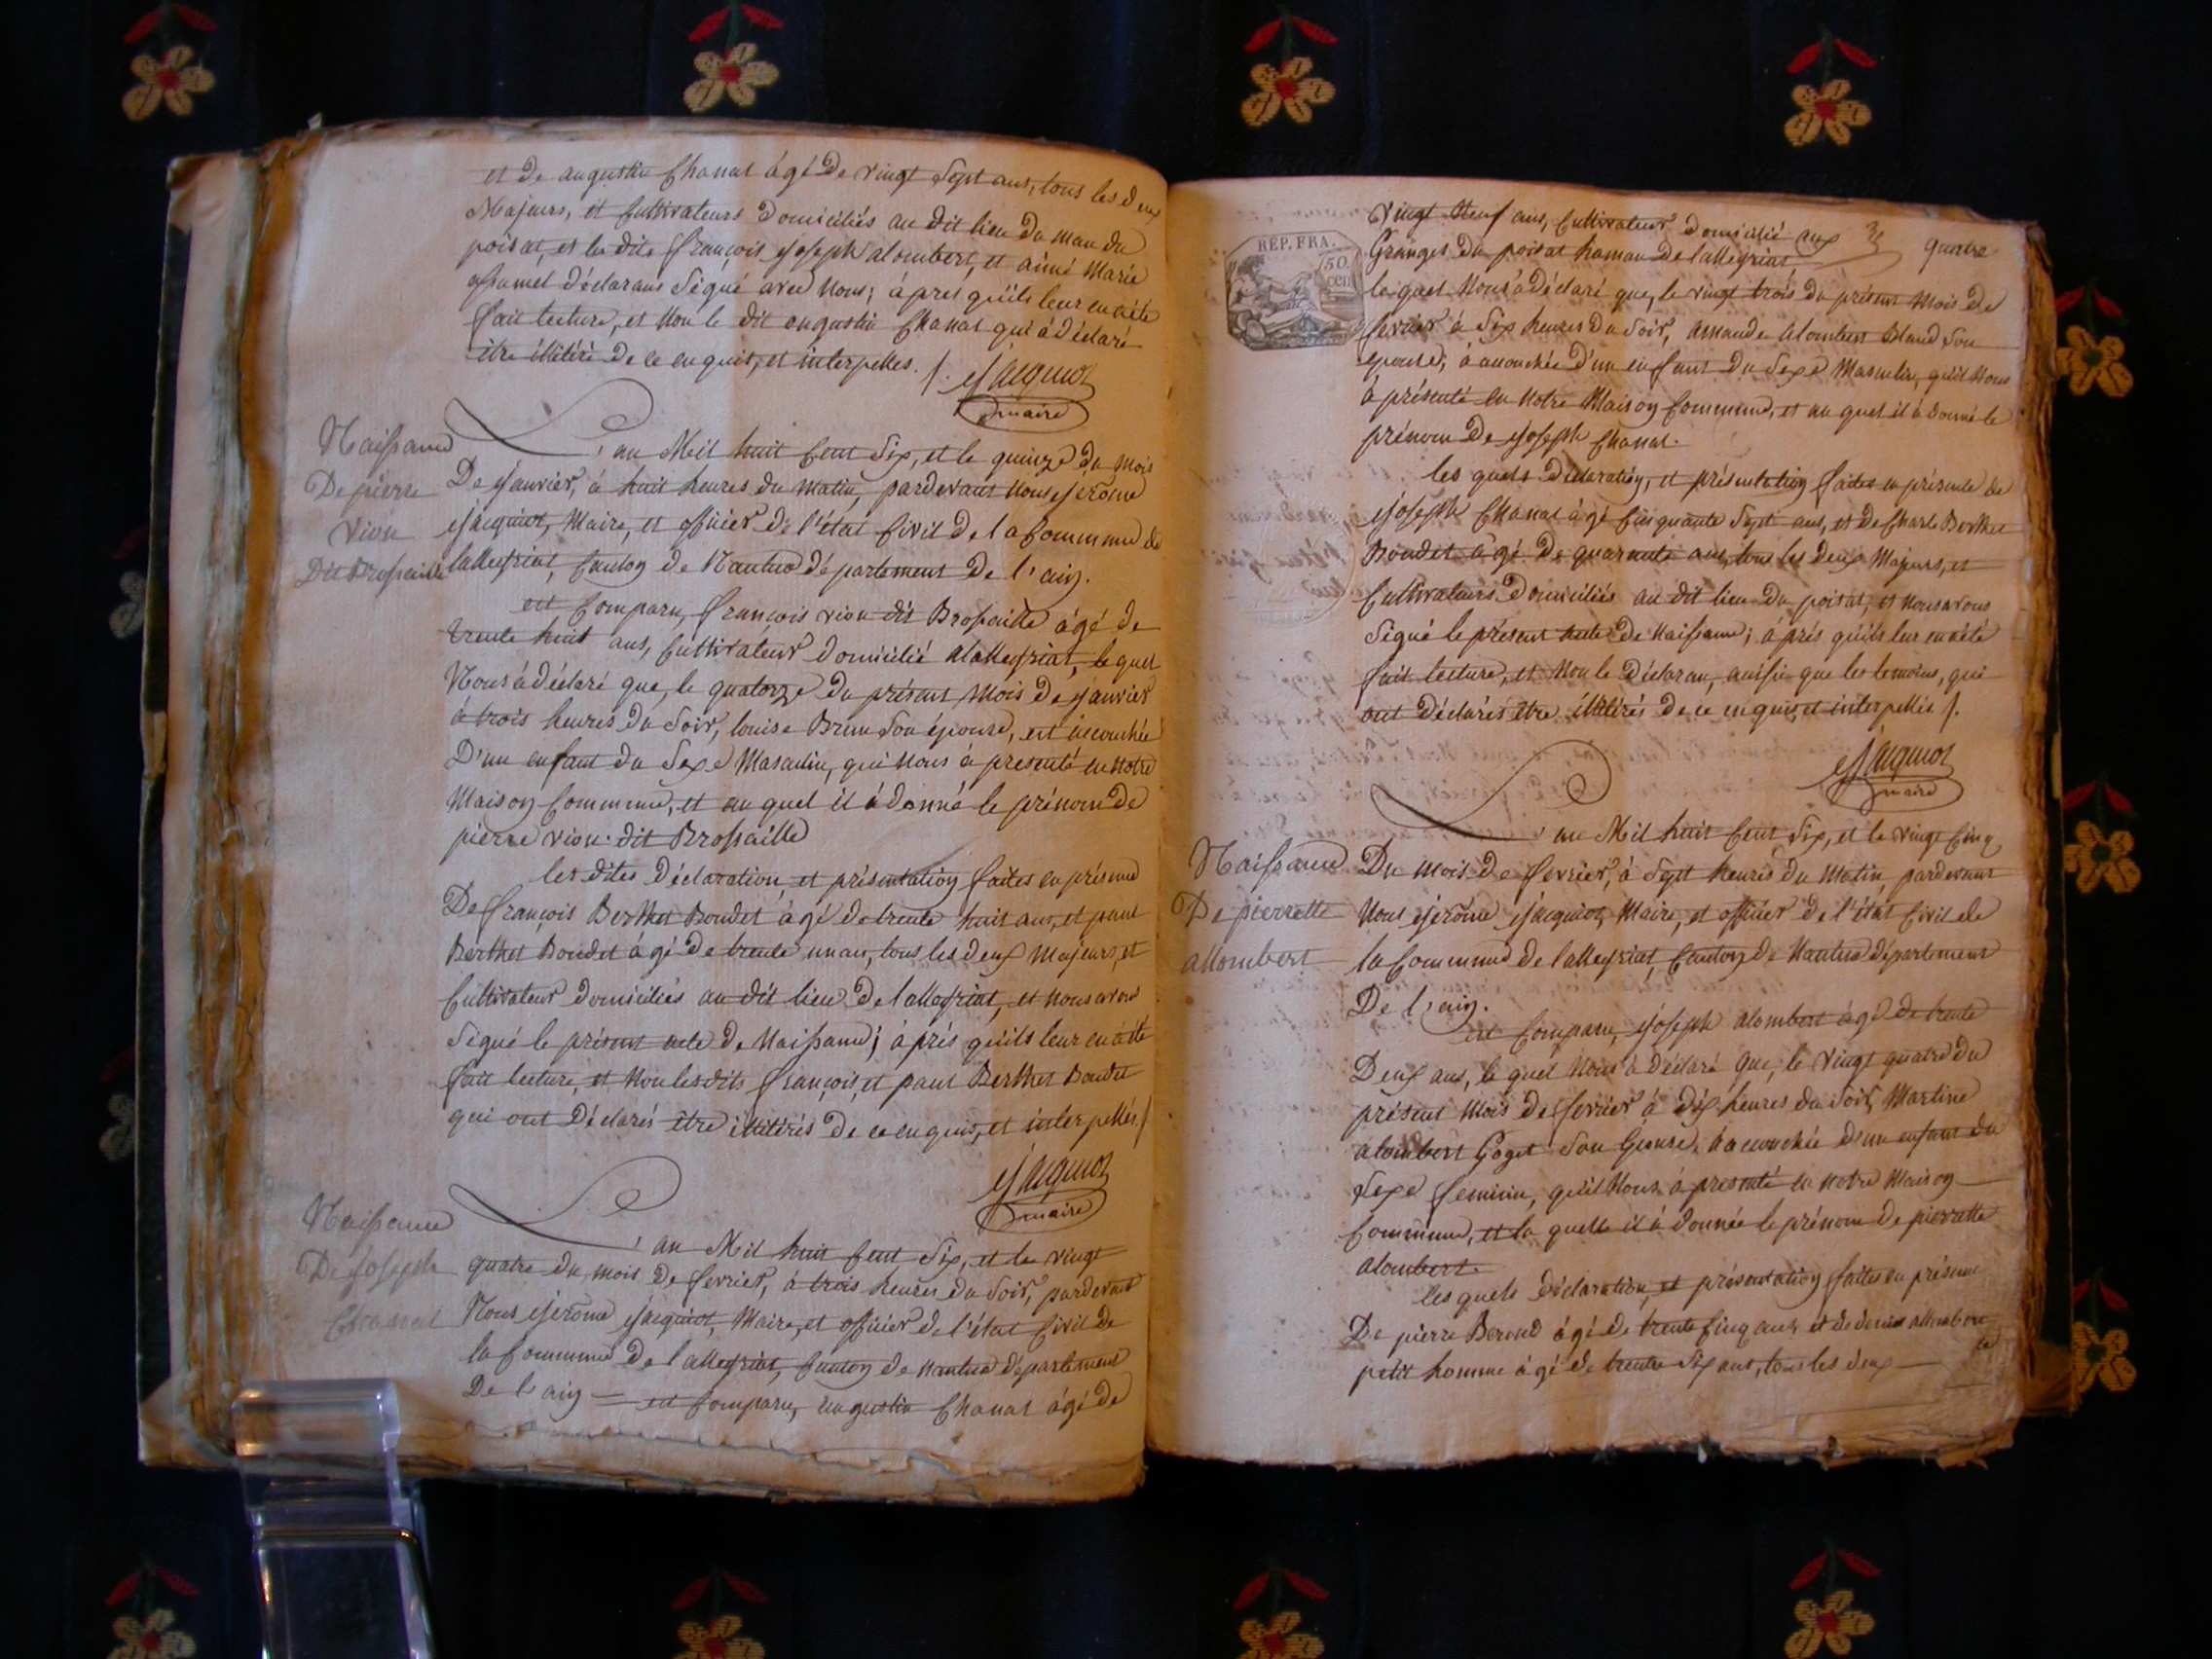 et de augustin Chanal âgé de vingt Sept ans, tous les deux
Majeurs, et Cultivateurs domiciliés au dit lieu du man du
poisat, et les dits françois joseph alombert, et aimé Marie
déclarans Signé avec Nous; àpres qu'ils leur en aété
fait lecture, et Non le dit augustin Chanal qui à déclaré
être illitéré de ce enquis, et interpelles. /. Jacquiot
maire
Naissance
De pierre
vion
Dit Brossaille
l'an Mil huit Cent Six, et le quinze du mois
De janvier, à huit heures du matin, pardevant Nous jerôme
jacquiot, Maire, et officier de l'état Civil de la Commune de
lalleyriat, Canton de Nantua département De l'ain.
est Comparu, françois vion dit Brossaille âgé de
trente huit ans, Cultivateur domicilié alalleyriat, lequel
Nous à déclaré que, le quatorze du présent mois de janvier
à trois heures du Soir, louise Brun Son épouse, est accouchée
D'un enfant du Sexe Masculin, qui Nous à présenté en Notre
Maison Commune, et au quel il à donné le prénom de
pierre vion dit Brossaille
les dites Déclaration et présentation faites en présence
De françois Berthet Bondet âgé de trente huit ans, et paul
Berthet Bondet âgé de trente un an, tous les deux Majeurs, et
Cultivateur domiciliés au dit lieu de lalleyriat, et Nous avons
Signé le présent acte de Naissance; àprés qu'ils leur en aété
fait lecture, et Non lesdits françois, et paul Berthet Bondet
qui ont Déclarés être illitérés de ce enquis, et interpellés. /
Jacquiot
maire
Naissance
De joseph
Chanal
l'an Mil huit Cent Six, et le vingt
quatre du mois de fevrier, à trois heures du Soir, pardevant
Nous jerôme jacquiot, Maire, et officier de l'état Civil de
la Commune De lalleyriat, Canton de Nantua département
De l'ain — est Comparu, augustin Chanal âgé de
quatre
REP. FRA.
50
cen
vingt Neuf ans, Cultivateur domicilié aux
Granges du poisat hamau de lalleyriat
lequel Nous à Déclaré que, le vingt trois du présent Mois de
fevrier à Six heures du Soir, amande alombert Bland Son
epouse, à accouchée d'un enfant du Sexe Masculin, qu'il Nous
à présenté en Notre Maison Commune, et au quel il à donné le
prénom De joseph Chanal.
les quels Déclaration, et présentation faites en présence de
joseph Chanal âgé Cinquante Sept ans, et de Charl Berthet
Bondet âgé de quarante ans, tous les Deux Majeurs, et
Cultivateurs domiciliés au dit lieu du poisat, et Nous avons
Signé le présent acte de Naissance; àprés qu'ils leur en aété
fait lecture, et Non le Déclaran, aussie que les temoins, qui
ont Déclarés être illitérés de ce enquis, et interpellés /.
Jacquiot
maire
Naissance
De pierrette
allombert
l'an Mil huit Cent Six, et le vingt Cinq
Du mois de fevrier, à Sept heures du Matin, pardevant
Nous jerôme jacquiot, Maire, et officier de l'état Civil de
la Commune de lalleyriat, Canton de Nantua département
De l'ain.
est Comparu, joseph alombert âgé de trente
Deux ans, le quel Nous à déclaré que, le vingt quatre du
présent Mois de fevrier à dix heures du Soir, Martine
alombert Goget Son épouse, à accouchée d'un enfant du
Sexe feminin, qu'il Nous à présenté en Notre Maison
Commune, et la quelle il à donnée le prénom de pierrette
alombert.
les quels déclaration, et présentation faites en présence
De pierre Berend âgé de trente Cinq ans, et de denis allombert
petit homme âgé de trente Six ans, tous les deux —